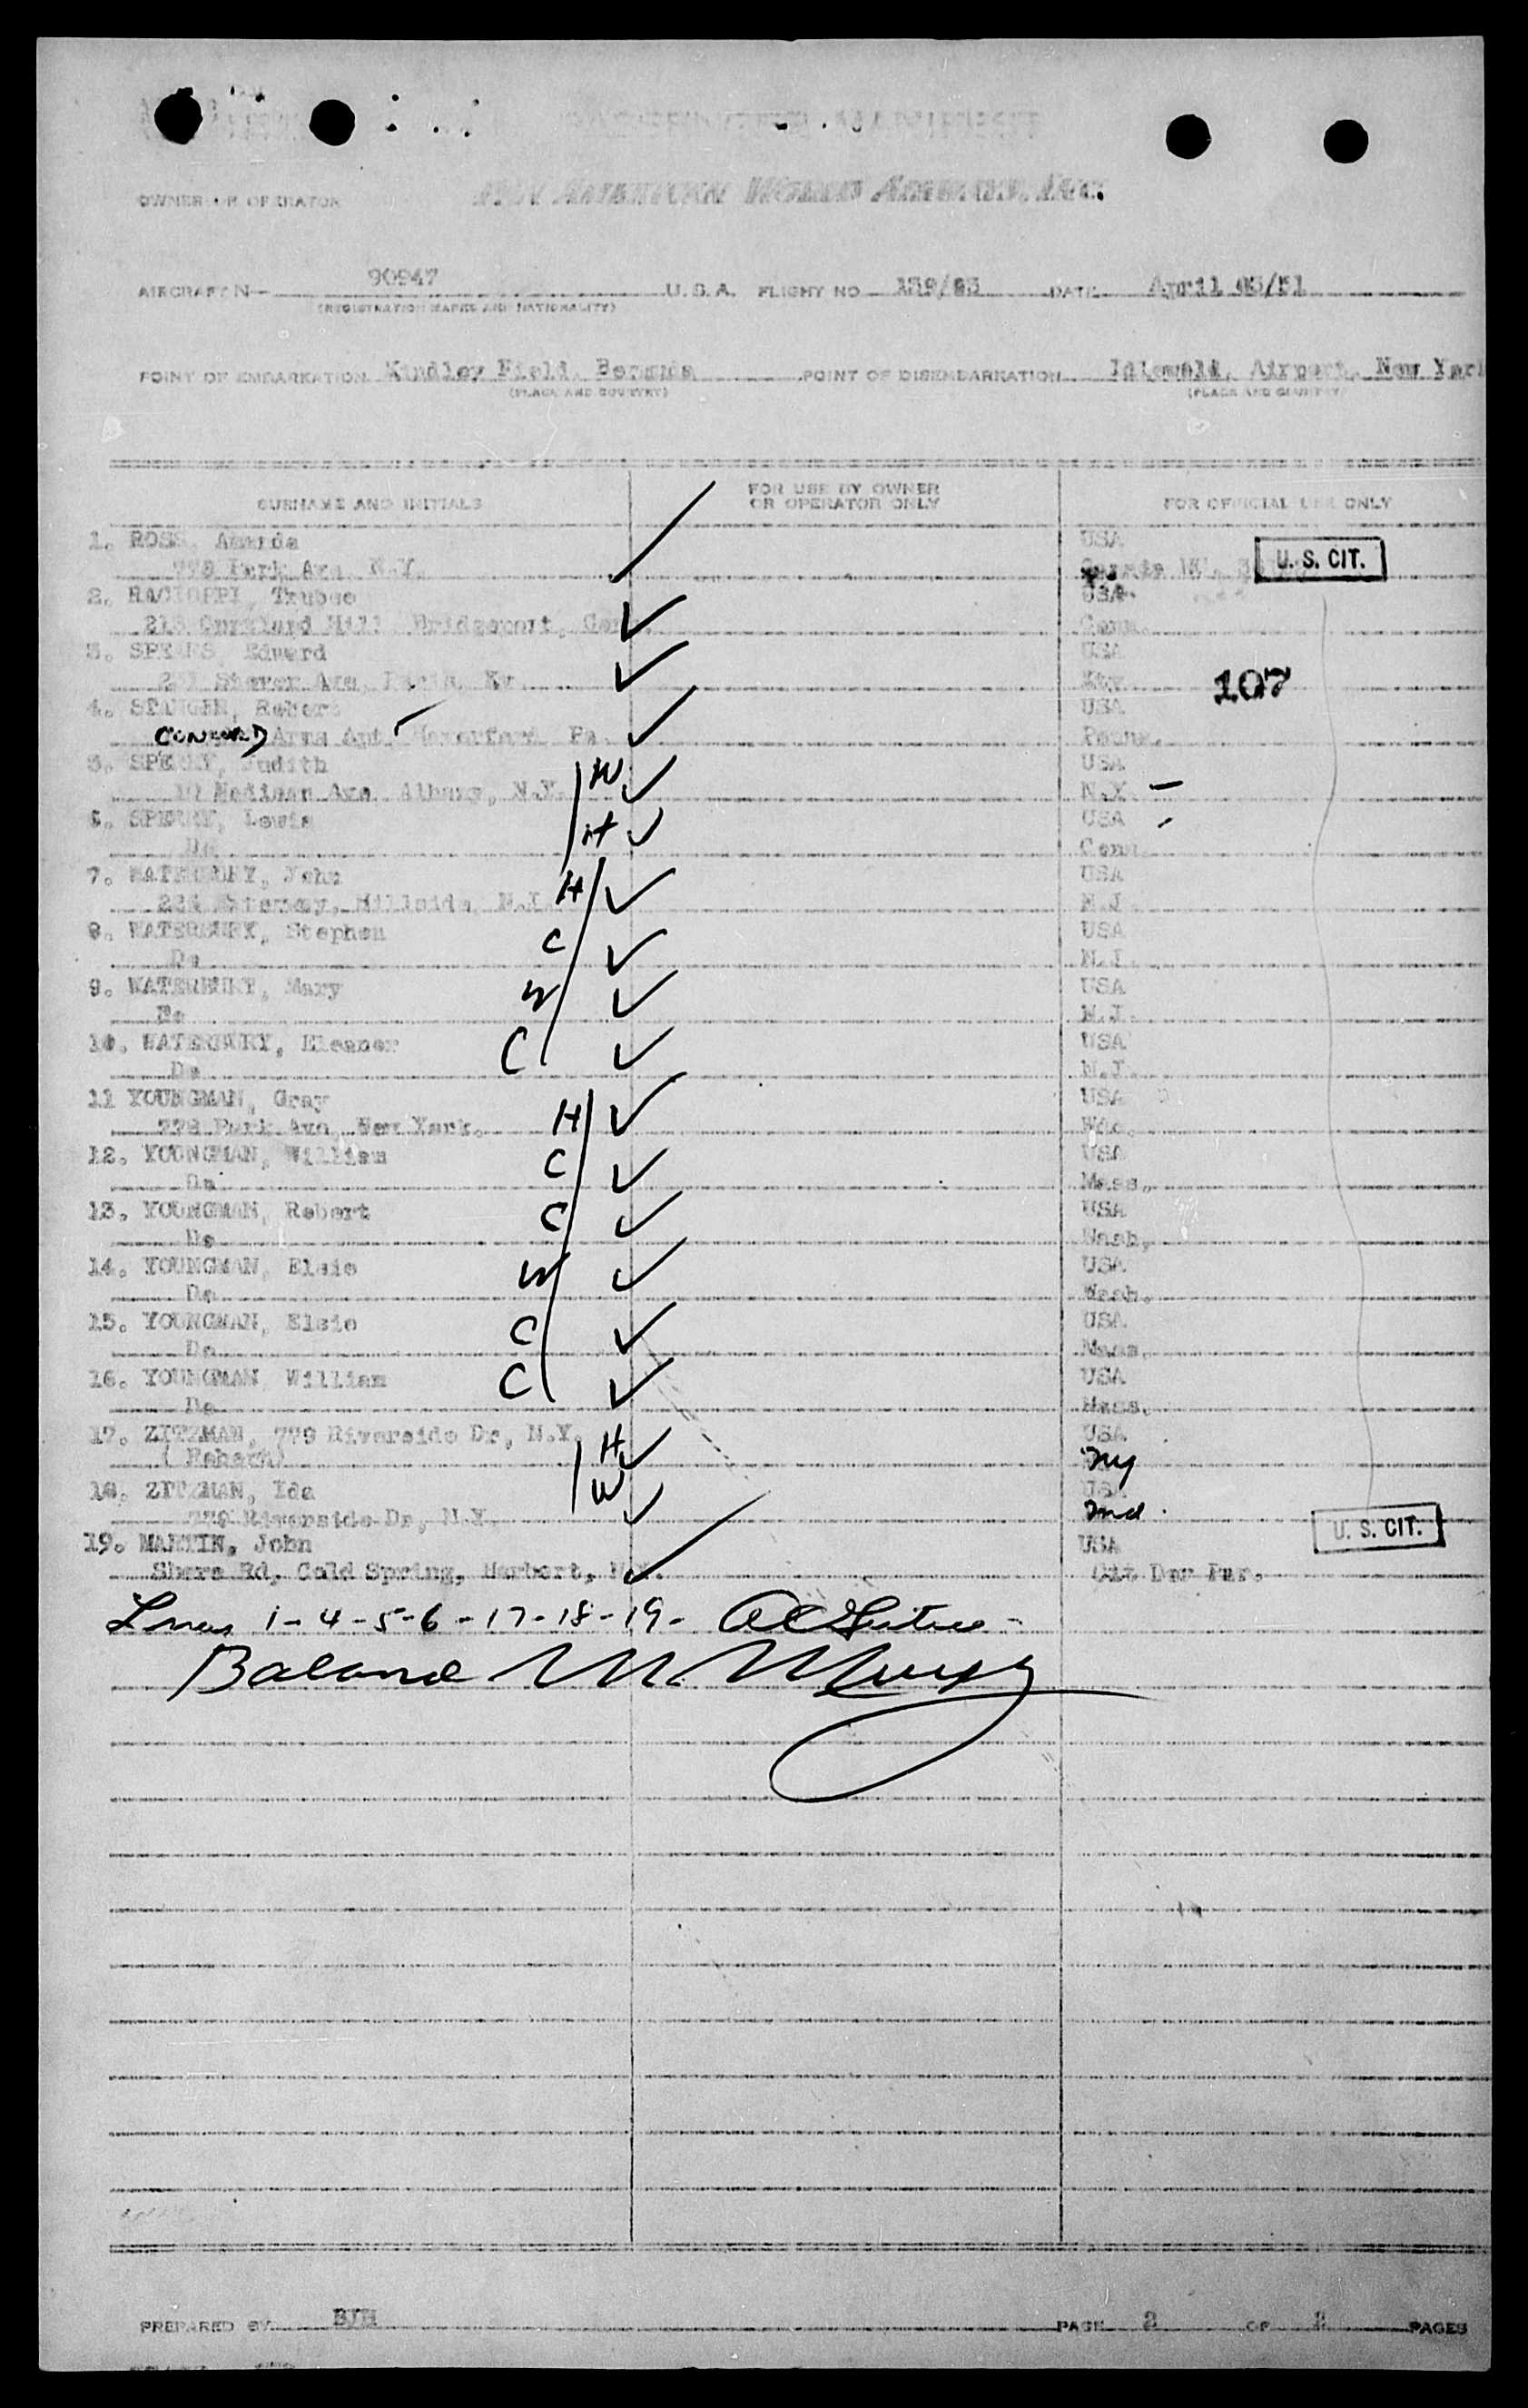 PASSENGER MANIFEST
OWNER OR OPERATOR PAN AMERICAN WORLD AIRWAYS, INC.
AIRCRAFT N— 90947 U.S.A. FLIGHT NO DATE April
(REGISTRATION MARKS AND NATIONALITY)
POINT OF EMBARKATION Kindley Field, Bermuda POINT OF DISEMBARKATION Idlewild, Airport, New York
(PLACE AND COUNTRY) (PLACE AND COUNTRY)
SURNAME AND INITIALS FOR USE BY OWNER OR OPERATOR ONLY FOR OFFICIAL USE ONLY
1. ROSS, USA U. S. CIT.
Park Ave, N.Y.
2. USA
Hill Bridgeport, Conn.
3. SPEARS, Edward USA
Ave, Paris, Ky. Kty 107
4. Robert USA
CONCORD Arms Apt. Haverford Pa. Penna.
5. SPERRY, Judith W USA
Madison Ave. Albany, N.Y. N.Y. —
6. SPERRY, Lewis H USA
Do Conn.
7. WATERBURY, John H USA
Hillside N.J. N.J.
8. WATERBURY, Stephen C USA
Do N.J.
9. WATERBURY, Mary W USA
Do N.J.
10. WATERBURY, Eleanor C USA
Do N.J.
11 YOUNGMAN, Gray USA
Park Ave, New York. H
12. YOUNGMAN, William C USA
Do Mass.
13. YOUNGMAN, Robert C USA
Do Wash.
14. YOUNGMAN, Elsie W USA
Do Wash.
15. YOUNGMAN, Elsie C USA
Do Mass.
16. YOUNGMAN, William C USA
Do Mass.
17. ZITZMAN, 779 Riverside Dr, N.Y. H USA
NY
18. ZITZMAN, Ida W USA
779 Riverside Dr, N.Y. U. S. CIT.
19. MARTIN, John USA
Shore Rd, Cold Spring, Harbort, N.Y. Cit Der Par.
Lines 1-4-5-6-17-18-19-
Balance
PREPARED BY BJH PAGE 2 OF 2 PAGES